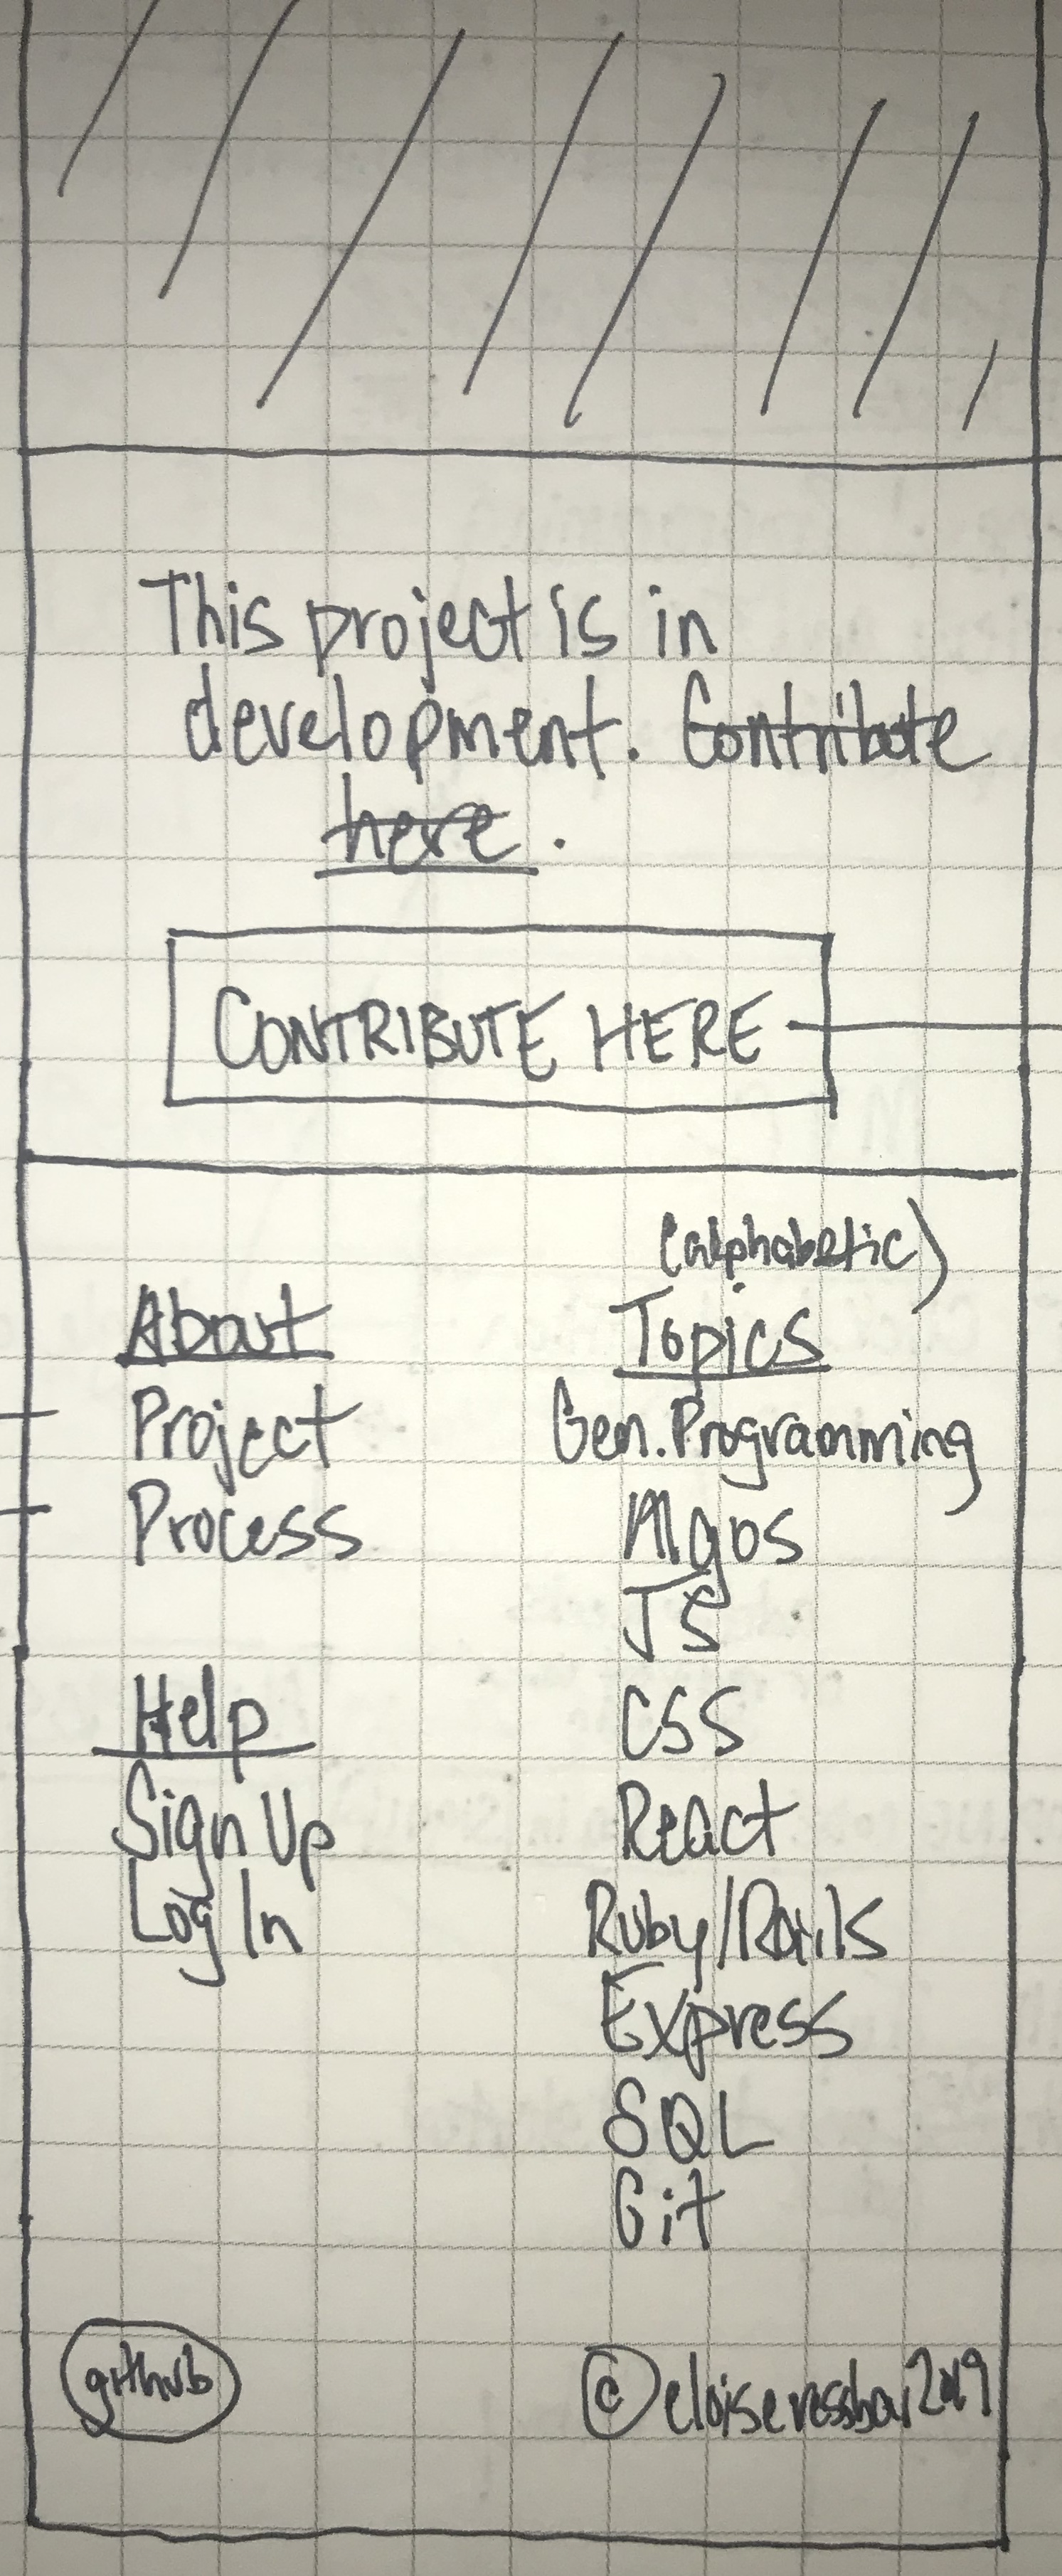 This project is in
development. Contribute
here.
CONTRIBUTE HERE
(alphabetic)
About
Project
Process
Help
Sign Up
Log In
Topics
Gen. Programming
Algos
JS
CSS
React
Ruby/Rails
Express
SQL
Git
github
© 2019